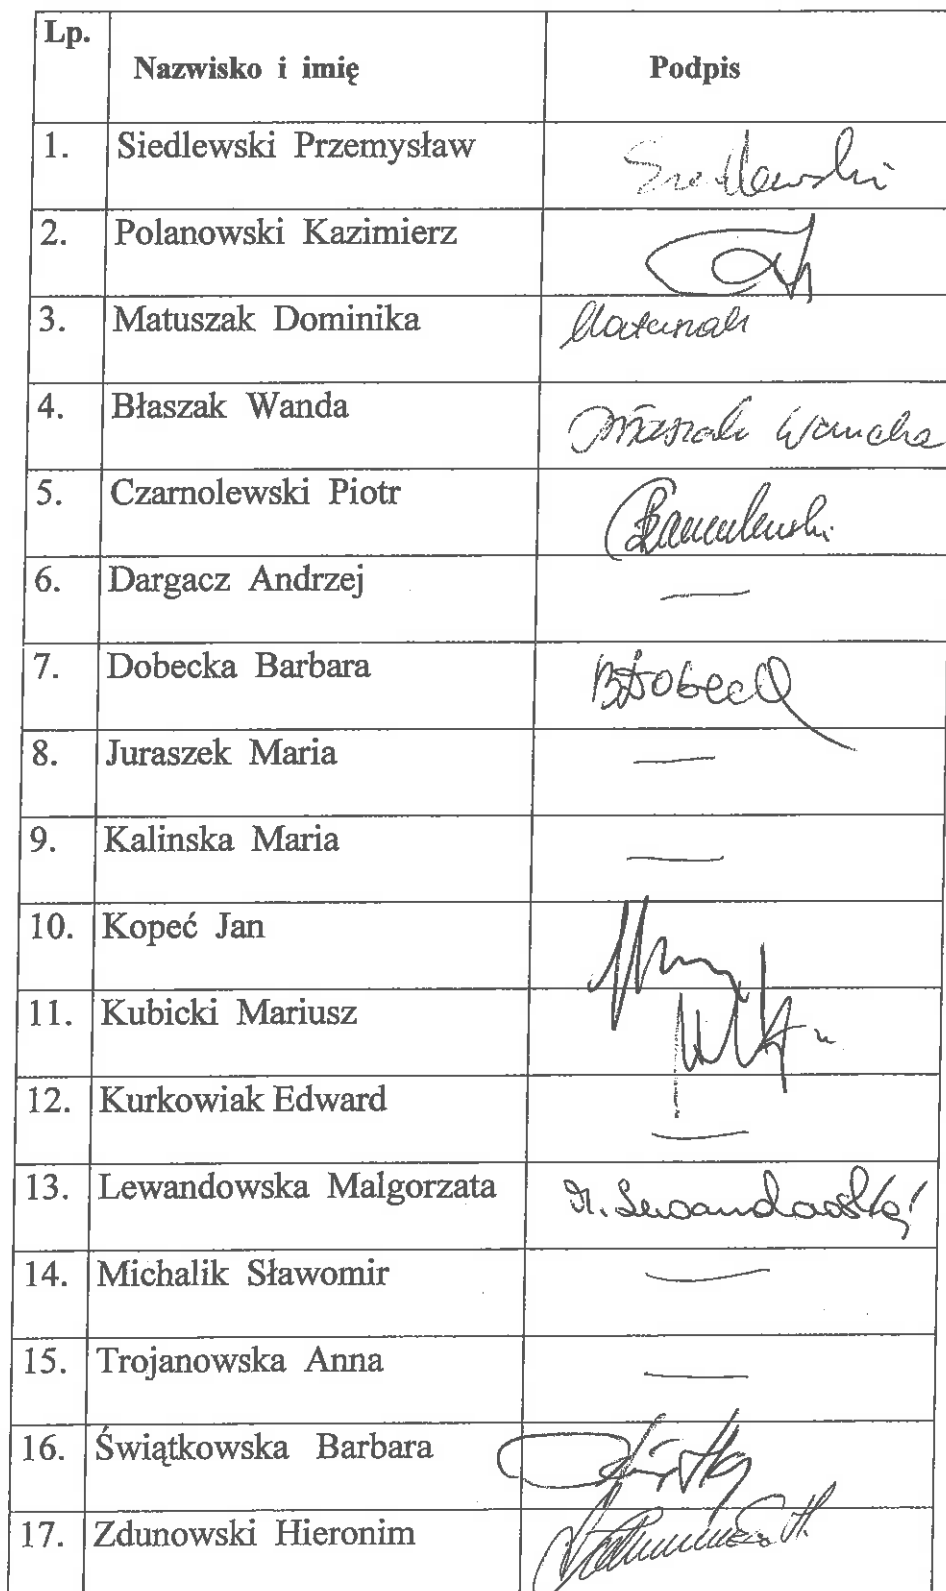 Lp. Nazwisko i imię Podpis
1. Siedlewski Przemysław Siedlewski
2. Polanowski Kazimierz
3. Matuszak Dominika Matuszak
4. Błaszak Wanda Błaszak Wanda
5. Czarnolewski Piotr Czarnolewski
6. Dargacz Andrzej —
7. Dobecka Barbara BDobeck
8. Juraszek Maria —
9. Kalinska Maria —
10. Kopeć Jan
11. Kubicki Mariusz
12. Kurkowiak Edward —
13. Lewandowska Malgorzata M. Lewandowska
14. Michalik Sławomir —
15. Trojanowska Anna —
16. Świątkowska Barbara
17. Zdunowski Hieronim